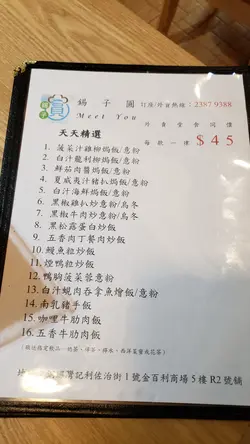 錫子圓
訂座/外自熱線：2387 9388
Meet You
外賣堂食同價
天天精選
每款一律 $45
1. 菠菜汁雞柳焗飯/意粉
2. 白汁龍利柳焗飯/意粉
3. 鮮茄肉醬焗飯/意粉
4. 夏威夷汁豬扒焗飯/意粉
5. 白汁海鮮焗飯/意粉
6. 黑椒雞扒炒意粉/烏冬
7. 黑椒牛肉炒意粉/烏冬
8. 黑松露蛋白炒飯
9. 五香肉丁餐肉炒飯
10. 鰻魚粒炒飯
11. 煙鴨粒炒飯
12. 鴨胸菠菜蓉意粉
13. 白汁蜆肉吞拿魚燴飯/意粉
14. 南乳豬手飯
15. 咖哩牛肋肉飯
16. 五香牛肋肉飯
灣記利佐治街1號金百利商場5樓R2號舖